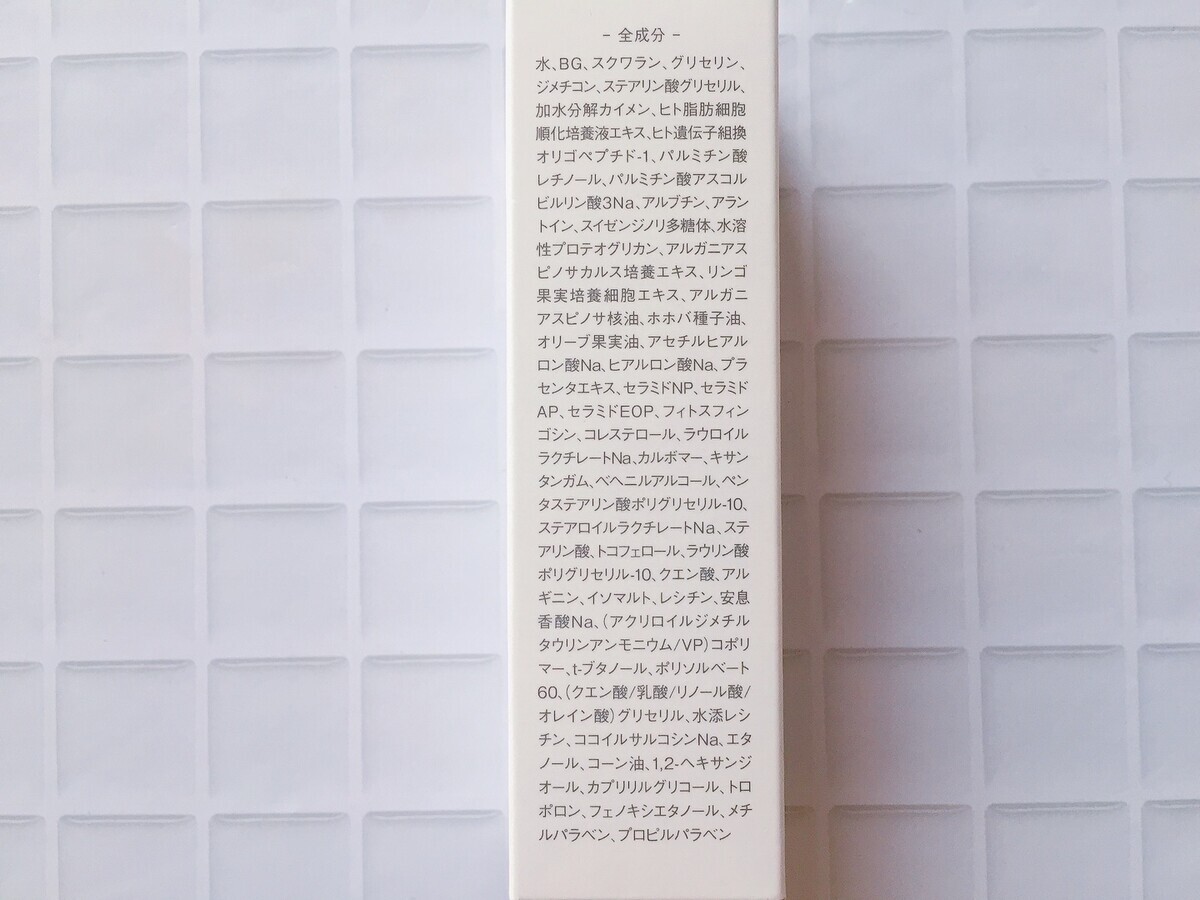 - 全成分 -
水、BG、スクワラン、グリセリン、
ジメチコン、ステアリン酸グリセリル、
加水分解カイメン、ヒト脂肪細胞
順化培養液エキス、ヒト遺伝子組換
オリゴペプチド-1、パルミチン酸
レチノール、パルミチン酸アスコル
ビルリン酸3Na、アルブチン、アラン
トイン、スイゼンジノリ多糖体、水溶
性プロテオグリカン、アルガニアス
ピノサカルス培養エキス、リンゴ
果実培養細胞エキス、アルガニ
アスピノサ核油、ホホバ種子油、
オリーブ果実油、アセチルヒアル
ロン酸Na、ヒアルロン酸Na、プラ
センタエキス、セラミドNP、セラミド
AP、セラミドEOP、フィトスフィン
ゴシン、コレステロール、ラウロイル
ラクチレートNa、カルボマー、キサン
タンガム、ベヘニルアルコール、ペン
タステアリン酸ポリグリセリル-10、
ステアロイルラクチレートNa、ステ
アリン酸、トコフェロール、ラウリン酸
ポリグリセリル-10、クエン酸、アル
ギニン、イソマルト、レシチン、安息
香酸Na、(アクリロイルジメチル
タウリンアンモニウム/VP)コポリ
マー、t-ブタノール、ポリソルベート
60、(クエン酸/乳酸/リノール酸/
オレイン酸)グリセリル、水添レシ
チン、ココイルサルコシンNa、エタ
ノール、コーン油、1,2-ヘキサンジ
オール、カプリリルグリコール、トロ
ポロン、フェノキシエタノール、メチ
ルパラベン、プロピルパラベン